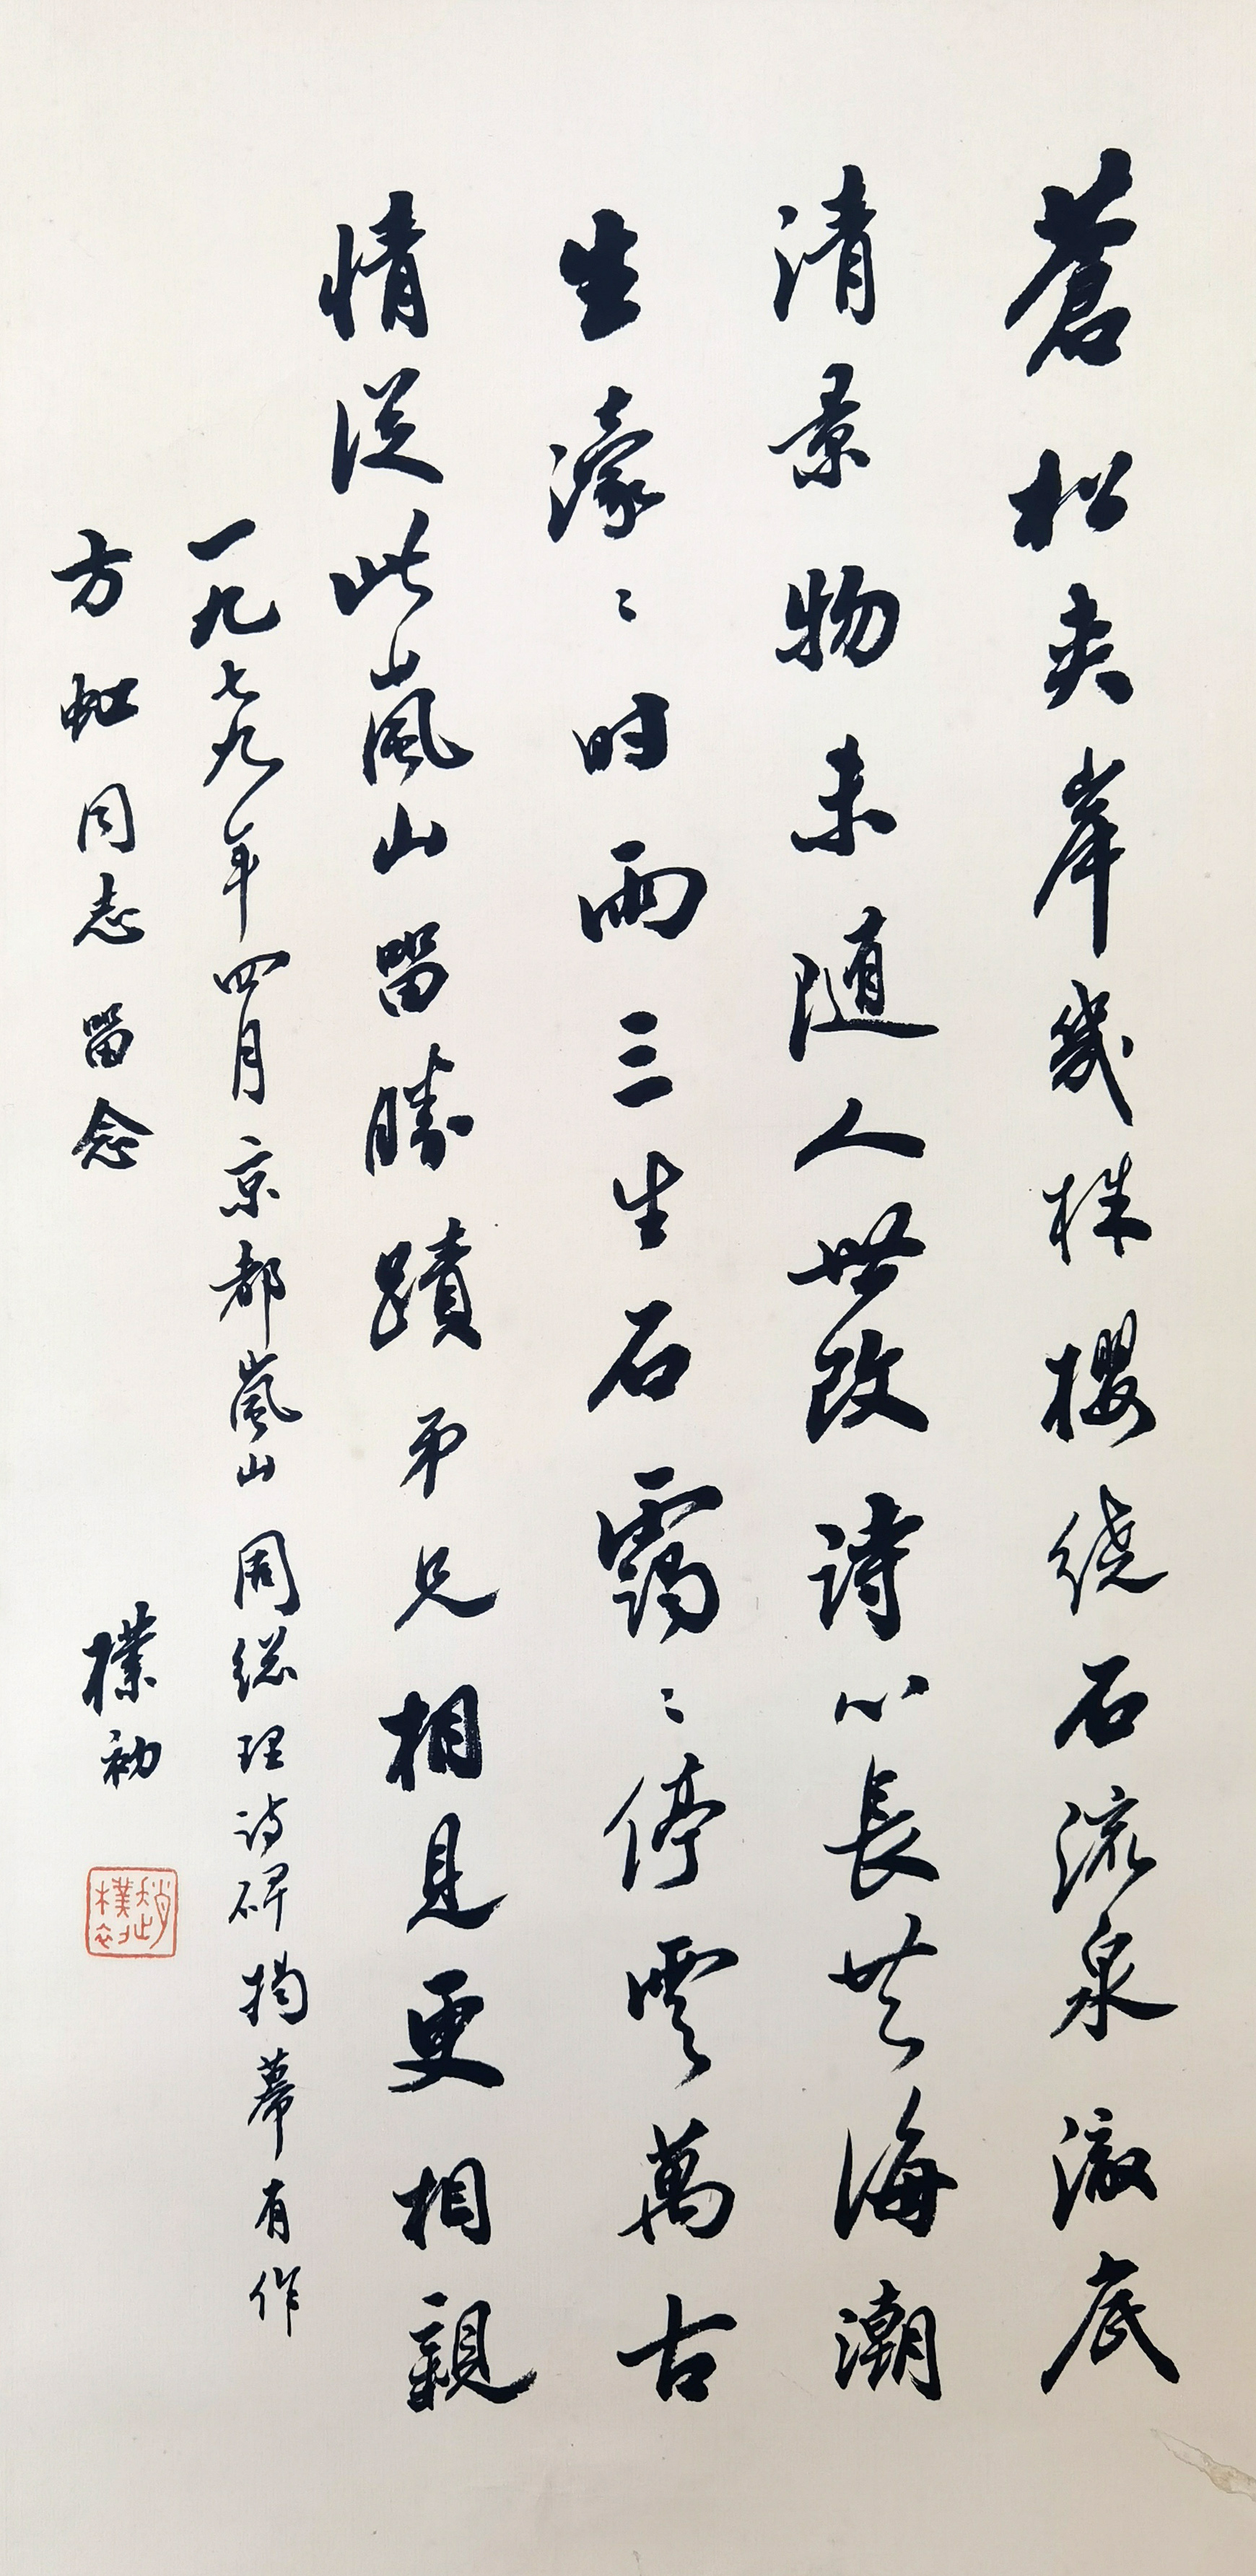 蒼松夹岸幾株櫻绕石流泉澈底
清景物未随人世改诗心長共海潮
生濛〻时雨三生石靄〻停雲萬古
情从此嵐山留勝蹟弟兄相見更相親
一九七九年四月京都嵐山周総理诗碑揭幕有作
方虹同志留念
樸初
趙樸初